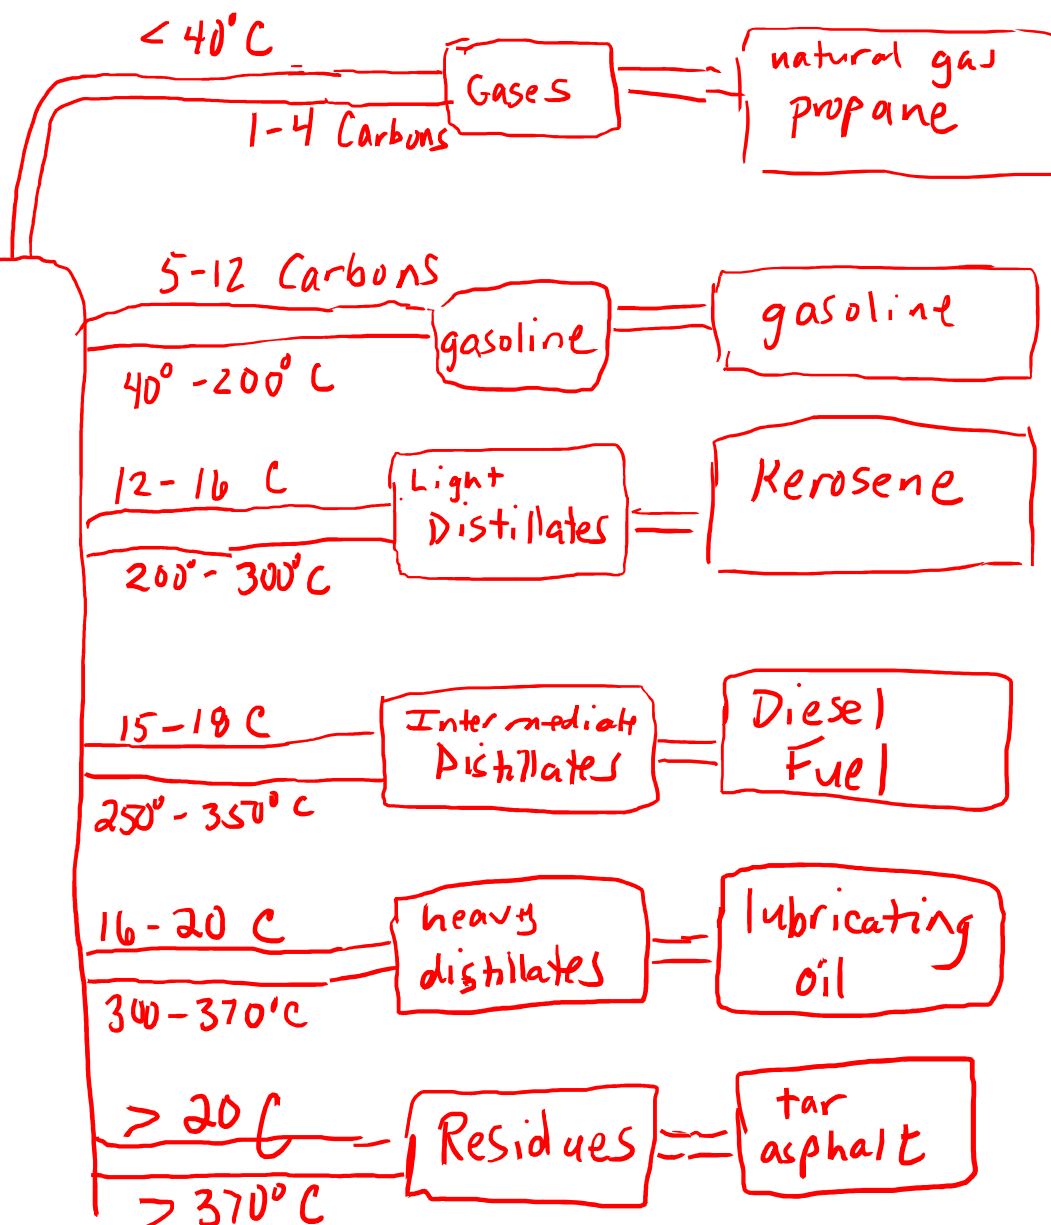 < 40° C
1-4 Carbons
Gases
natural gas
propane
5-12 Carbons
40° - 200° C
gasoline
gasoline
12-16 C
200° - 300° C
Light
Distillates
Kerosene
15-18 C
250° - 350° C
Intermediate
Distillates
Diesel
Fuel
16-20 C
300-370°C
heavy
distillates
lubricating
oil
> 20 C
> 370° C
Residues
tar
asphalt